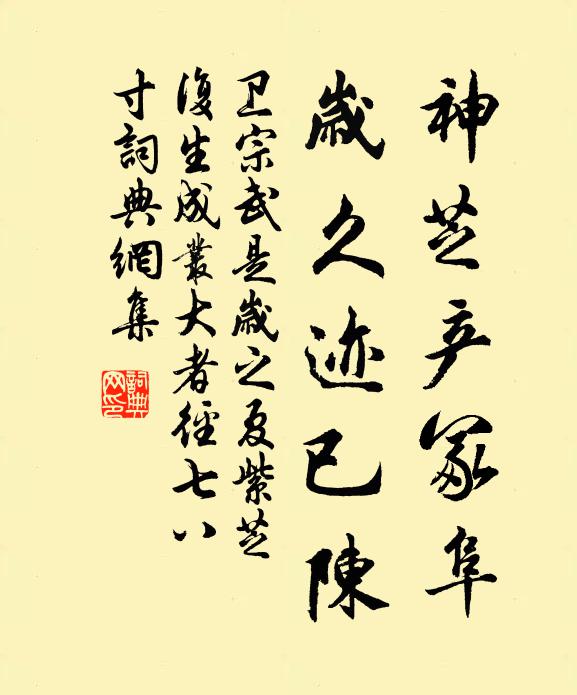 神芝产冢阜
歳久迹已陳
卫宗武是歳之夏紫芝
復生成叢大者徑七八
寸詞典網集
詞典
网印